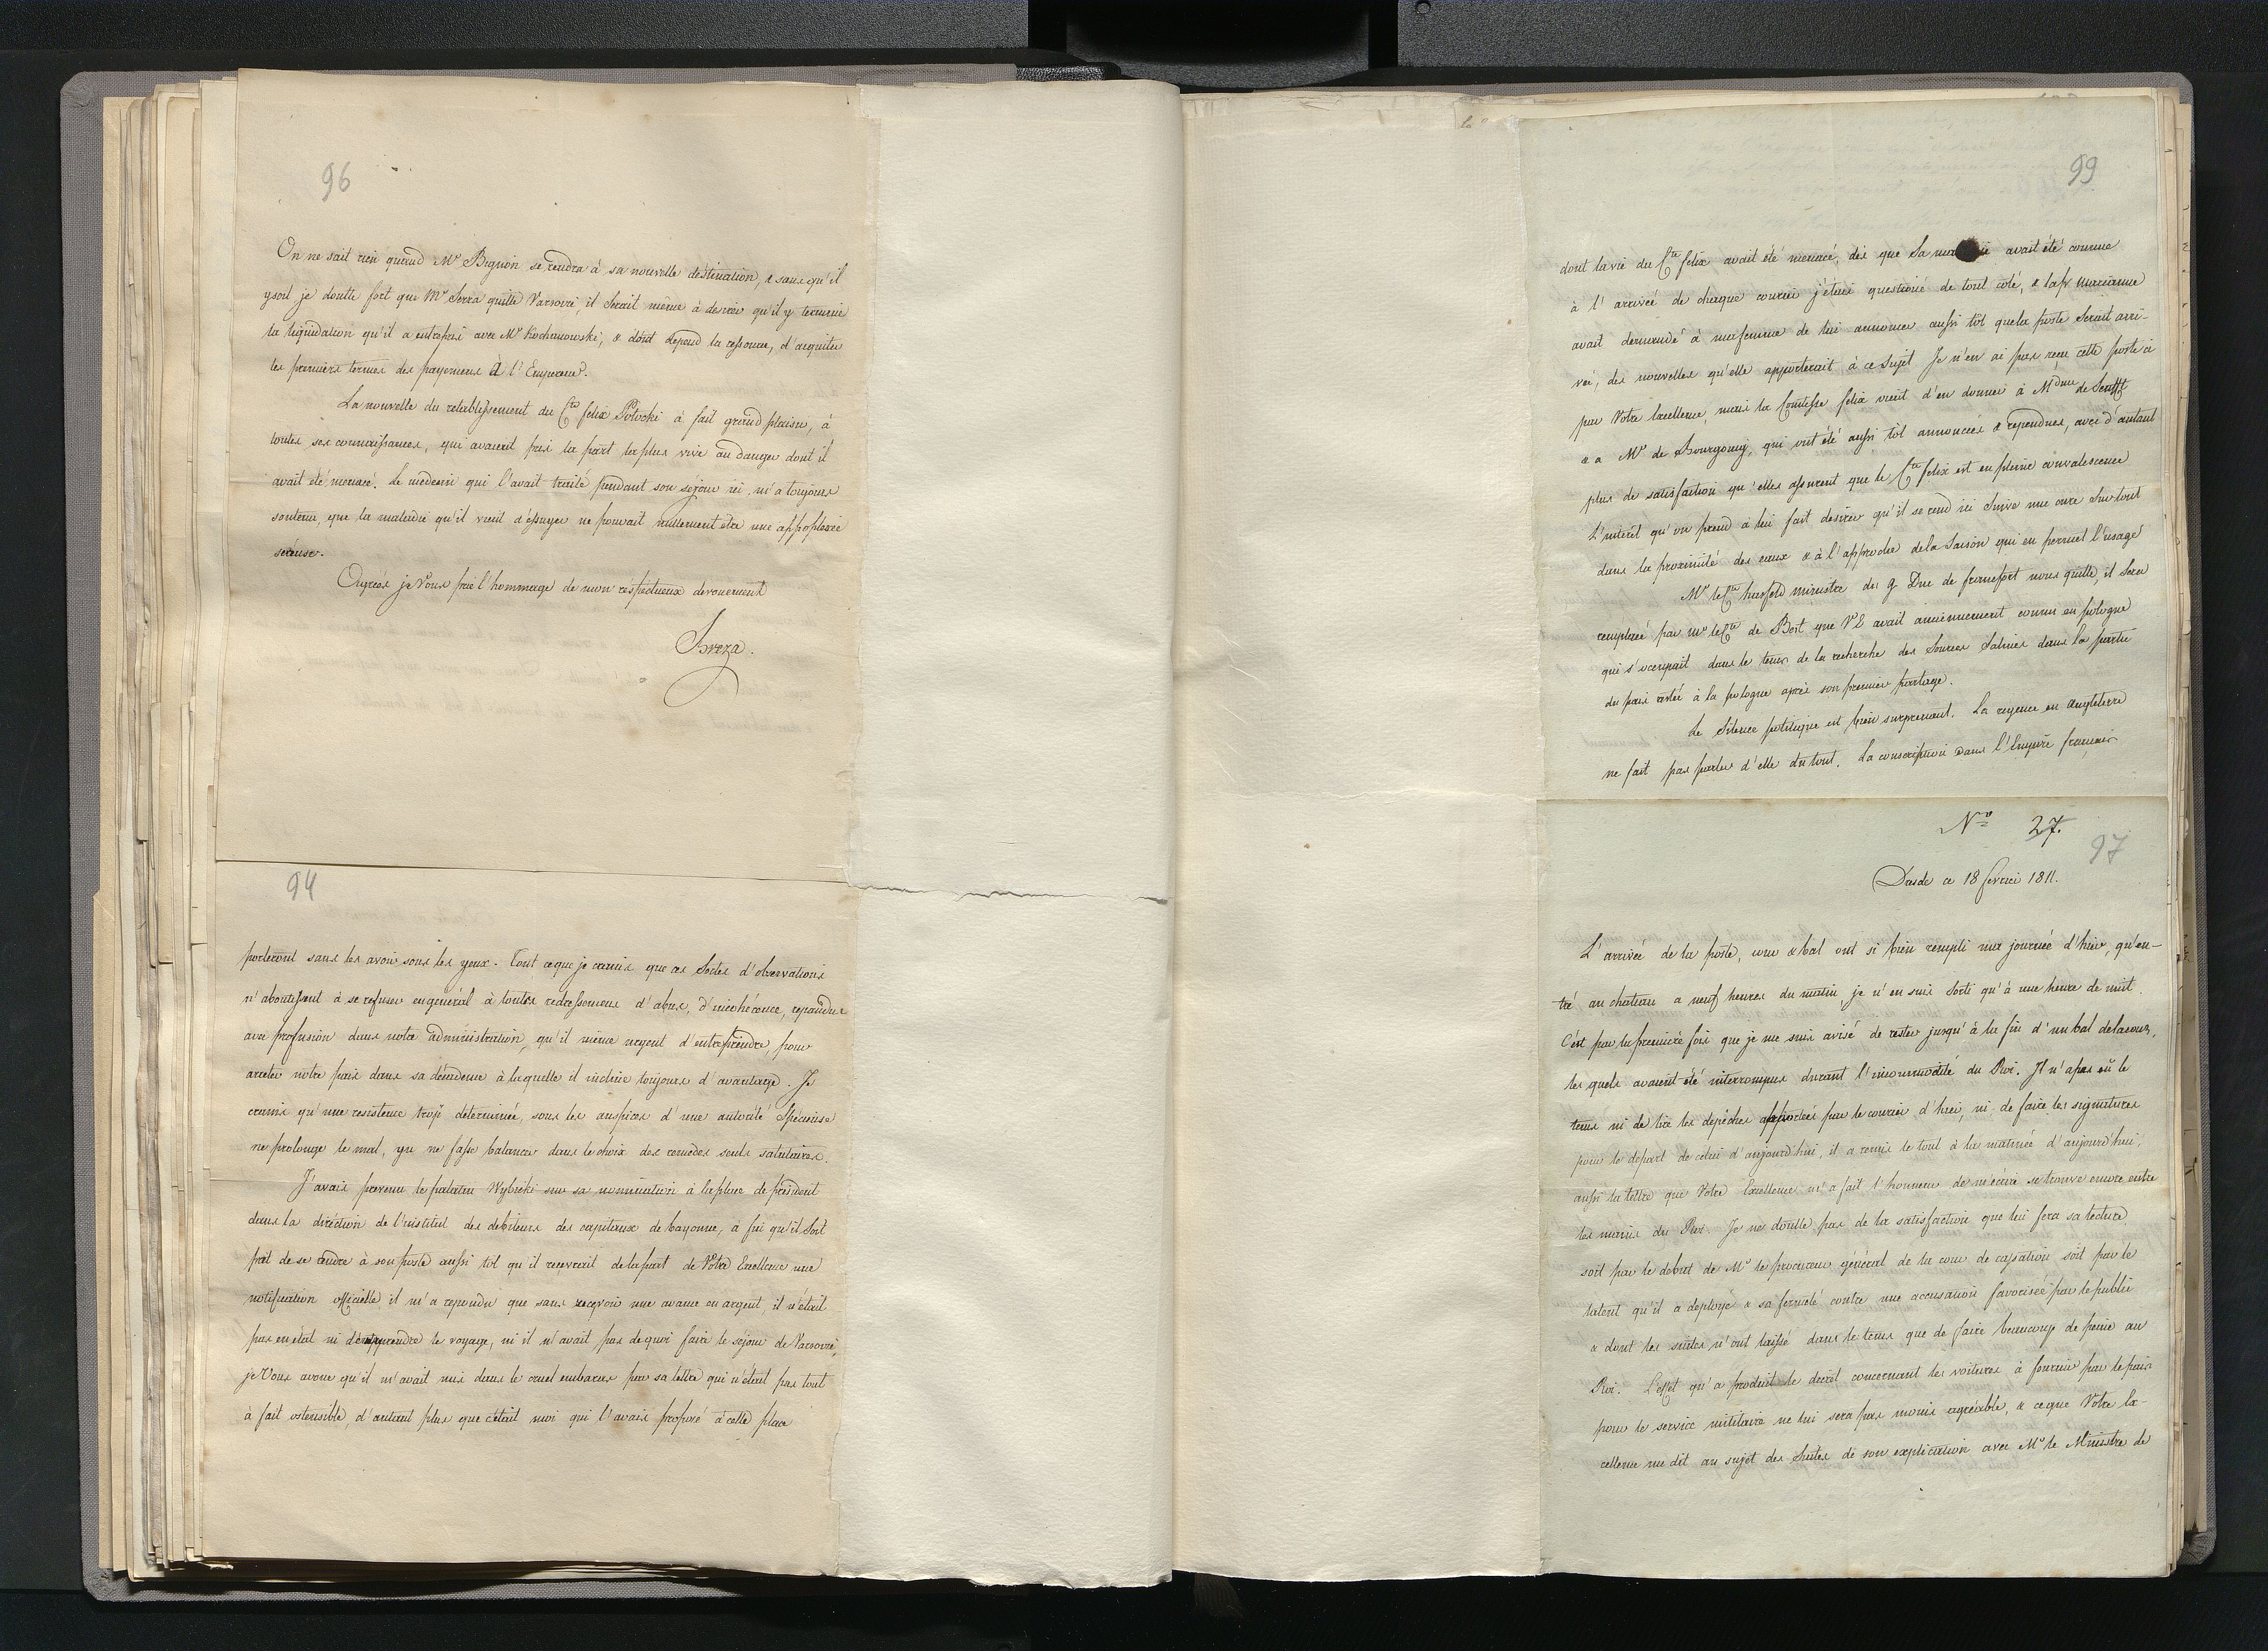 96
On ne sait rien quand Mr Bignon se rendra à sa nouvelle déstination, & sans qu'il
y soit je doutte fort que Mr Serra quitte Varsovie, il serait même à desirer qu'il y termine
la liquidation qu'il a entrepris avec Mr Kochanowski, & dont depend la ressource, d'acquiter
les premiers termes des payemens à l'Empereur.
La nouvelle du retablissement du Cte felix Potocki à fait grand plaisir, à
toutes ses connaissances, qui avaient pris la part la plus vive au danger dont il
avait été menacé. Le medecin qui l'avait traité pendant son sejour ici, m'a toujours
soutenu, que la maladie qu'il vient d'essuyer ne pouvait nullement etre une appoplexie
sereuse.
Agréés je Vous prie l'hommage de mon respectueux devouement
Breza.
94
porteront sans les avoir sous les yeux. Tout ce que je crains que ces sortes d'observations
n'aboutissent à se refuser en général à toutes redressemens d'abus, d'incohérence, repandue
avec profusion dans notre administration, qu'il même urgent d'entreprendre, pour
arreter notre pais dans sa décadence à laquelle il incline toujours d'avantage. Je
crains qu'une resistence trop determinée, sous les auspices d'une autorité spécieuse
ne prolonge le mal, qu ne fasse balancer dans le choix des remedes seuls salutaires.
J'avais prevenu le palatin Wybicki sur sa nommination à la place de président
dans la diréction de l'institut des debiteurs des capitaux de bayonne, à fin qu'il soit
prêt de se rendre à son poste aussi tôt qu'il recevrait de la part de Votre Excellence une
notification officielle, il m'a repondu que sans recevoir une avance en argent, il n'était
pas en état ni d'entreprendre le voyage, ni il n'avait pas de quoi faire le séjour de Varsovie,
je Vous avoue qu'il m'avait mis dans le cruel embaras par sa lettre qui n'était pas tout
à fait ostensible, d'autant plus que c'était moi qui l'avais proposé à cette place
99
dont la vie du Cte felix avait été menacé, dés que sa avait été connue
à l'arrivée de chaque courier j'étais questioné de tout coté, & la Pr Marianne
avait demandé à ma femme de lui annoncer aussi tôt que la poste serait arri-
vée, des nouvelles qu'elle apporterait à ce sujet Je n'en ai pas reçu cette poste ci
par Votre Excellence, mais la Comtesse felix vient d'en donner à Mdme de Senfft
& a Mr de Bourgoing, qui ont été aussi tôt annoncées & rependues, avec d'autant
plus de satisfaction qu'elles assurent que le Cte felix est en pleine convalescence
L'intérêt qu'on prend à lui fait desirer qu'il se rend ici suivre une cure surtout
dans la proximité des eaux & à l'approche de la saison qui en permet l'usage
Mr le Cte hatsfeld ministre du g Duc de francfort nous quitte, il sera
remplacé par Mr le Cte de Bost que V E avait anciennement connu en pologne
qui s'occupait dans le tems de la recherche des sources salines dans la partie
du pais restée à la pologne après son premier partage.
Le Silence politique est bien surprenant. La regence en angleterre
ne fait pas parler d'elle du tout. La conscription dans l'Empire francais
No 27.
97
Dresde ce 18 fevrier 1811.
L'arrivée de la poste, cour & bal ont si bien rempli ma journée d'hier, qu'en-
tré au chateau a neuf heures du matin je n'en suis sorti qu'à une heure de nuit.
C'est pas la première fois que je me suis avisé de rester jusqu'à la fin d'un bal de la cour,
les quels avaient été interrompus durant l'incommodité du Roi. Il n'a pas eû le
tems ni de lire les depéches apportées par le courier d'hier, ni de faire les signatures
pour le départ de celui d'aujourd'hui, il a remis le tout à la matinée d'aujourd'hui,
aussi la lettre que Votre Excellence m'a fait l'honneur de m'écrire se trouve encore entre
les mains du Roi. Je ne doutte pas de la satisfaction que lui fera sa lecture
soit par le debut de Mr le procureur général de la cour de cassation soit par le
talent qu'il a deployé & sa fermeté contre une accusation favorisée par le public
& dont les suites n'ont laissé dans le tems que de faire beaucoup de peine au
Roi. L'effet qu'a produit le décrét concernant les voitures à fournir par le pais
pour le service militaire ne lui sera pas moins agréable, & ce que Votre Ex-
cellence me dit au sujet des suites de son explication avec Mr le Ministre de